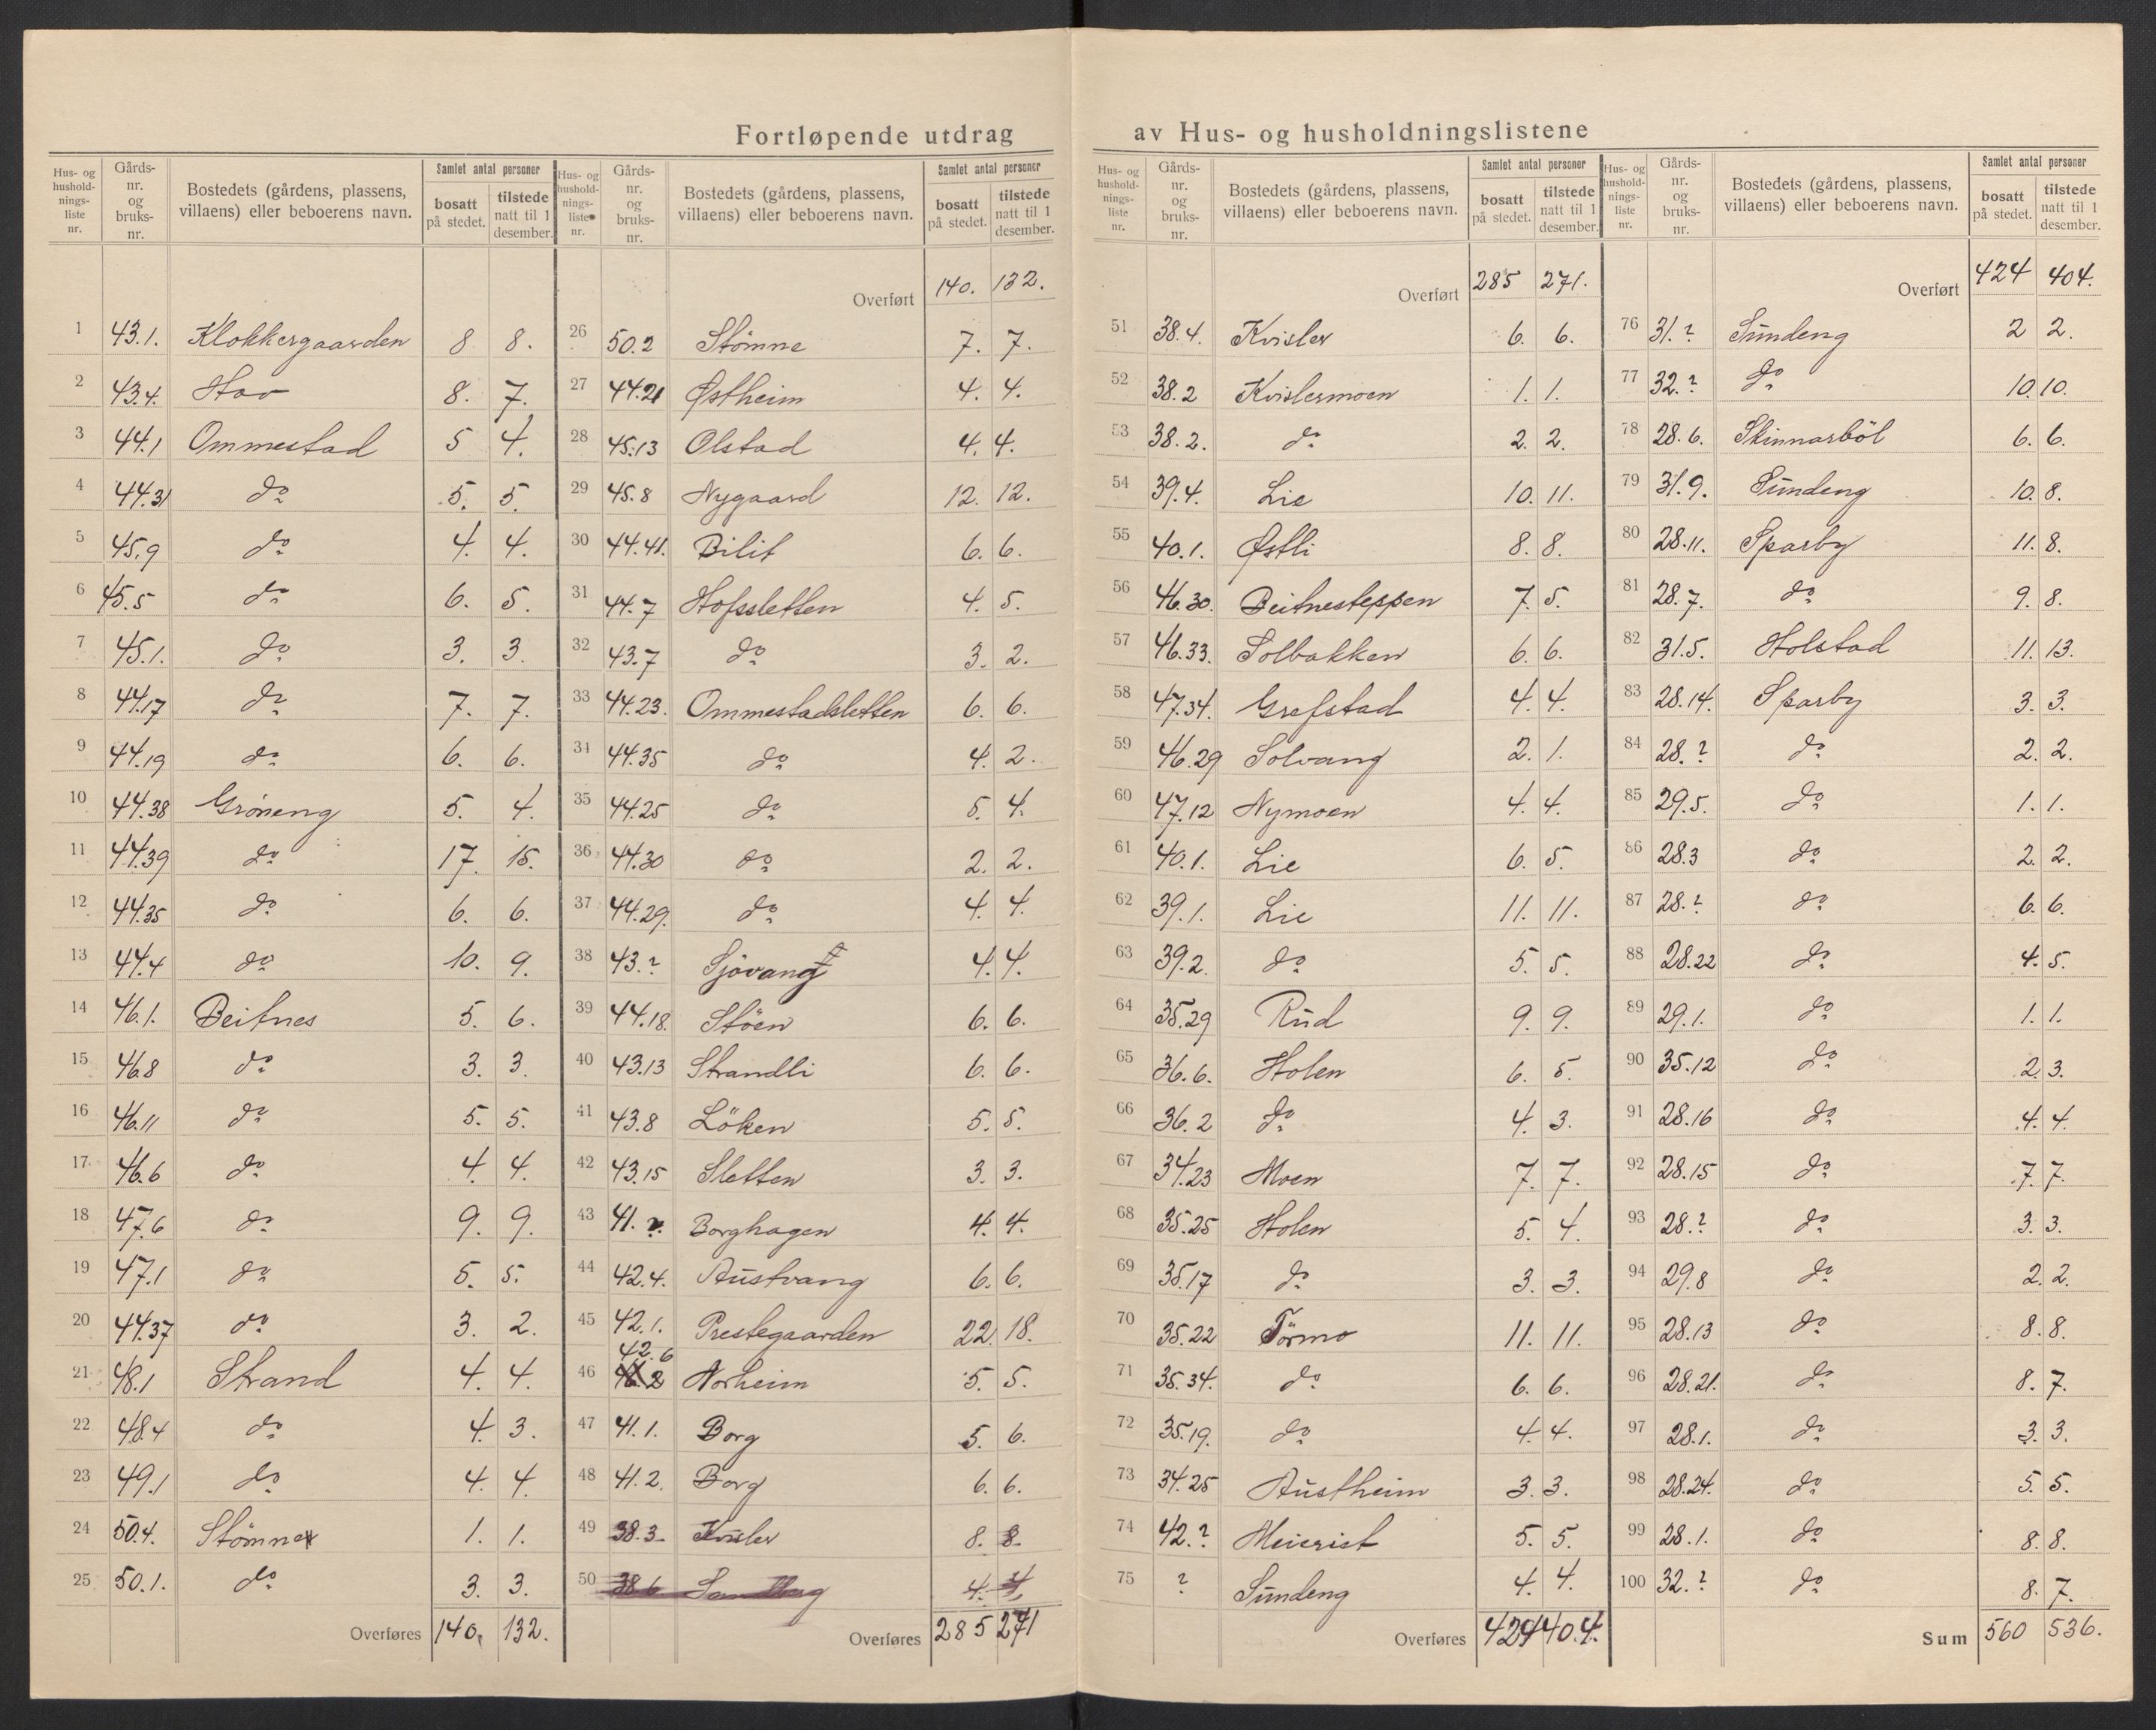 Fortløpende utdrag av Hus- og husholdningslistene
Hus- og hushold-nings-liste nr. | Gårds-nr. og bruks-nr. | Bostedets (gårdens, plassens, villaens) eller beboerens navn. | Samlet antal personer | bosatt på stedet. | tilstede natt til 1 desember.
1 43.1. Klokkergaarden 8 8.
2 43.4. Hov 8. 7.
3 44.1 Ommestad 5 4.
4 44.31 do 5. 5.
5 45.9 do 4. 4.
6 45.5 do 6. 5.
7 45.1. do 3. 3.
8 44.17 do 7. 7.
9 44.19 do 6. 6.
10 44.38 Gröneng 5. 4.
11 44.39 do 17. 15.
12 44.35 do 6. 6.
13 44.4 do 10. 9.
14 46.1. Beitnes 5. 6.
15 46.8 do 3. 3.
16 46.11 do 5. 5.
17 46.6 do 4. 4.
18 47.6 do 9. 9.
19 47.1 do 5. 5.
20 44.37 do 3. 2.
21 48.1 Strand 4. 4.
22 48.4 do 4. 3.
23 49.1 do 4. 4.
24 50.4. Stömne 1. 1.
25 50.1. do 3. 3.
Overføres 140. 132.
Hus- og hushold-nings-liste nr. | Gårds-nr. og bruks-nr. | Bostedets (gårdens, plassens, villaens) eller beboerens navn. | Samlet antal personer | bosatt på stedet. | tilstede natt til 1 desember.
Overført 140. 132.
26 50.2 Stömne 7. 7.
27 44.21 Østheim 4. 4.
28 45.13 Olstad 4. 4.
29 45.8 Nygaard 12. 12.
30 44.41. Bilit 6. 6.
31 44.7 Hofsletten 4. 5.
32 43.7 do 3. 2.
33 44.23. Ommestadsletten 6. 6.
34 44.35 do 4. 2.
35 44.25 do 5. 4.
36 44.30 do 2. 2.
37 44.29. do 4. 4.
38 43.? Sjövang 4. 4.
39 44.18. Stöen 6. 6.
40 43.13 Strandli 6. 6.
41 43.8 Löken 5. 5.
42 43.15 Sletten 3. 3.
43 41.? Borghagen 4. 4.
44 42.4. Austvang 6. 6.
45 42.1. Prestegaarden 22. 18.
46 42.6 Norheim 5. 5.
47 41.1. Borg 5. 6.
48 41.2. Borg 6. 6.
49 38.3 Kvisler 8. 8.
50 38.6 Sandberg 4. 4.
Overføres 285 271
Hus- og hushold-nings-liste nr. | Gårds-nr. og bruks-nr. | Bostedets (gårdens, plassens, villaens) eller beboerens navn. | Samlet antal personer | bosatt på stedet. | tilstede natt til 1 desember.
Overført 285 271.
51 38.4. Kvisler 6. 6.
52 38.2 Kvislermoen 1. 1.
53 38.2. do 2. 2.
54 39.4. Lie 10. 11.
55 40.1. Østli 8. 8.
56 46.30. Beitnesteppen 7. 5.
57 46.33. Solbakken 6. 6.
58 47.34. Grefstad 4. 4.
59 46.29 Solvang 2. 1.
60 47.12 Nymoen 4. 4.
61 40.1. Lie 6. 5.
62 39.1. Lie 11. 11.
63 39.2. do 5. 5.
64 35.29 Rud 9. 9.
65 36.6. Holen 6. 5.
66 36.2 do 4. 3.
67 34.23 Moen 7. 7.
68 35.25 Holen 5. 4.
69 35.17 do 3. 3.
70 35.22 Törmo 11. 11.
71 35.34. do 6. 6.
72 35.19. do 4. 4.
73 34.25 Austheim 3. 3.
74 42.? Meierist 5. 5.
75 ? Sundeng 4. 4.
Overføres 424 404.
Hus- og hushold-nings-liste nr. | Gårds-nr. og bruks-nr. | Bostedets (gårdens, plassens, villaens) eller beboerens navn. | Samlet antal personer | bosatt på stedet. | tilstede natt til 1 desember.
Overført 424 404.
76 31.? Sundeng 2 2.
77 32.? do 10. 10.
78 28.6. Skinnarböl 6. 6.
79 31.9. Sundeng 10. 8.
80 28.11. Sparby 11. 8.
81 28.7. do 9. 8.
82 31.5. Holstad 11. 13.
83 28.14. Sparby 3. 3.
84 28.? do 2. 2.
85 29.5. do 1. 1.
86 28.3 do 2. 2.
87 28.? do 6. 6.
88 28.22 do 4. 5.
89 29.1. do 1. 1.
90 35.12 do 2. 3.
91 28.16 do 4. 4.
92 28.15 do 7. 7.
93 28.? do 3. 3.
94 29.8 do 2. 2.
95 28.13 do 8. 8.
96 28.21. do 8. 7.
97 28.1. do 3. 3.
98 28.24. do 5. 5.
99 28.1. do 8. 8.
100 32.? do 8. 7.
Sum 560 536.